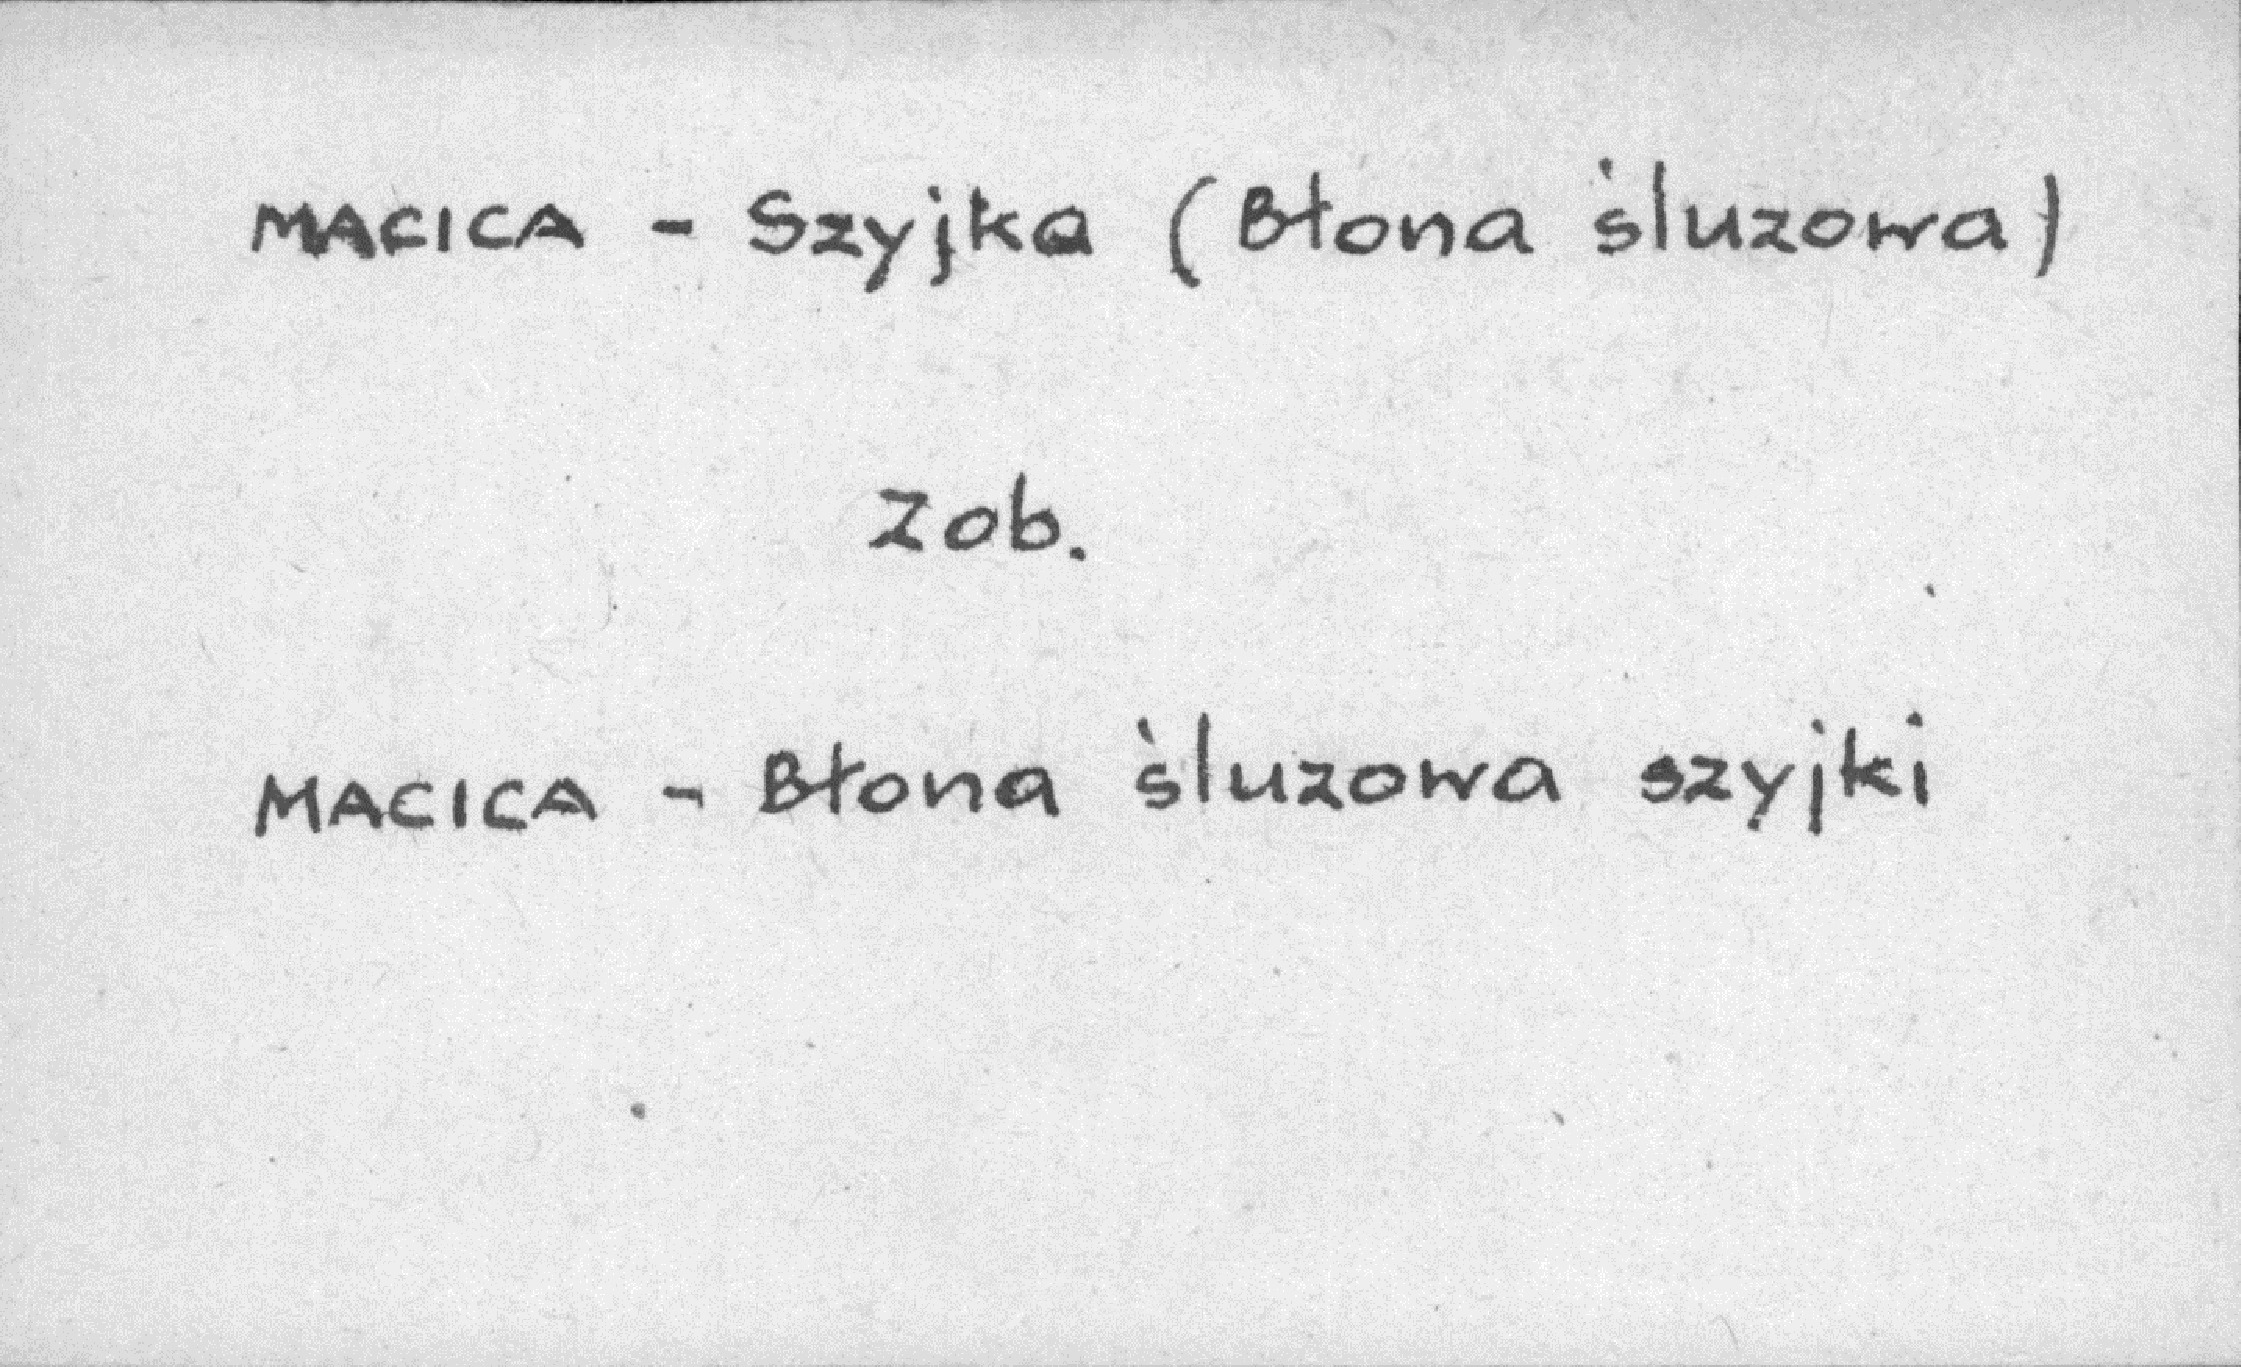 MACICA - Szyjka (Błona śluzowa)
Zob.
MACICA - Błona śluzowa szyjki